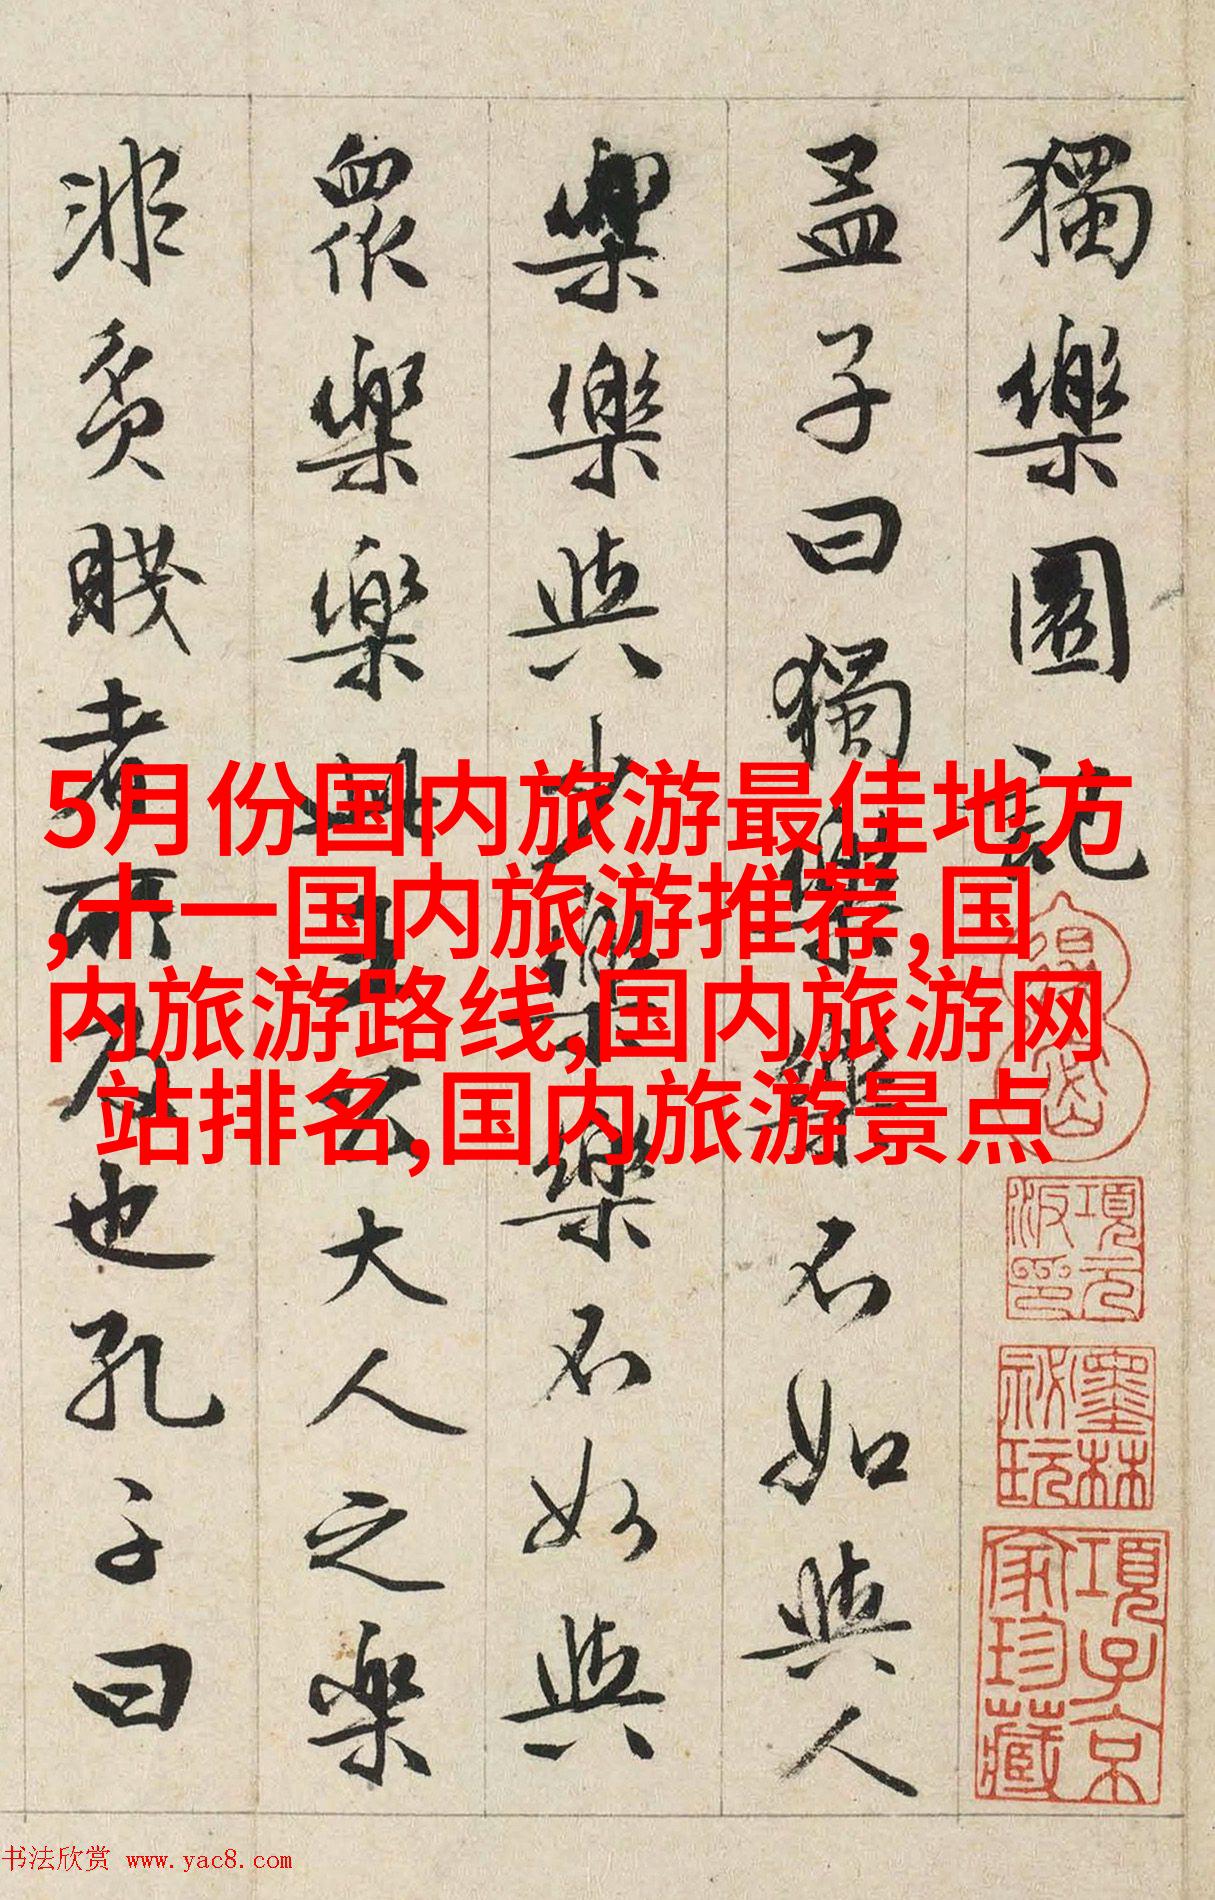 獨樂園記
孟子曰獨樂樂不如與人
樂樂與少樂樂不如與
衆樂樂此王公大人之樂
非貧賤者所及也孔子曰
5月份国内旅游最佳地方
,十一国内旅游推荐,国
内旅游路线,国内旅游网
站排名,国内旅游景点
項元汴印
墨林祕玩
項子京家珍藏
书法欣赏 www.yac8.com